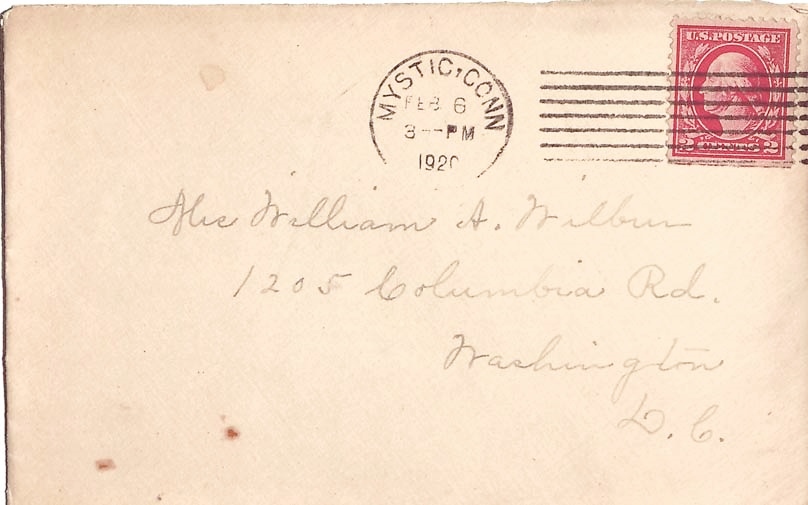 U.S. POSTAGE
MYSTIC, CONN
FEB 6
3--PM
1920
2 2
Mrs William A. Wilbur
1205 Columbia Rd.
Washington
D. C.